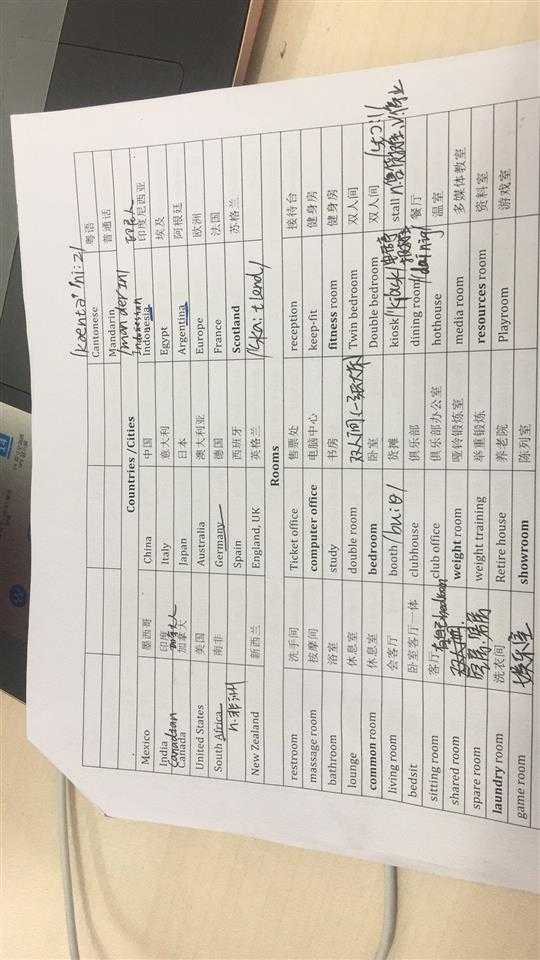 /kaentə'ni:z/
Cantonese 粤语
Mandarin 普通话
/mandərin/
Countries /Cities
Indonesian 印尼人
Mexico 墨西哥 China 中国 Indonesia 印度尼西亚
India 印度 Italy 意大利 Egypt 埃及
Canadian 加拿大人
Canada 加拿大 Japan 日本 Argentina 阿根廷
United States 美国 Australia 澳大利亚 Europe 欧洲
South Africa 南非 Germany 德国 France 法国
n.非洲
Spain 西班牙 Scotland 苏格兰
New Zealand 新西兰 England, UK 英格兰
Rooms
restroom 洗手间 Ticket office 售票处 reception 接待台
massage room 按摩间 computer office 电脑中心 keep-fit 健身房
bathroom 浴室 study 书房 fitness room 健身房
lounge 休息室 double room 双人间(一张大床) Twin bedroom 双人间
common room 休息室 bedroom 卧室 Double bedroom 双人间
living room 会客厅 booth 货摊 kiosk stall
bedsit 卧室客厅一体 clubhouse 俱乐部 dining room 餐厅
sitting room 客厅 club office 俱乐部办公室 hothouse 温室
shared room 双人间 weight room 哑铃锻炼室 media room 多媒体教室
spare room weight training 举重锻炼 resources room 资料室
laundry room 洗衣间 Retire house 养老院 Playroom 游戏室
game room 娱乐室 showroom 陈列室